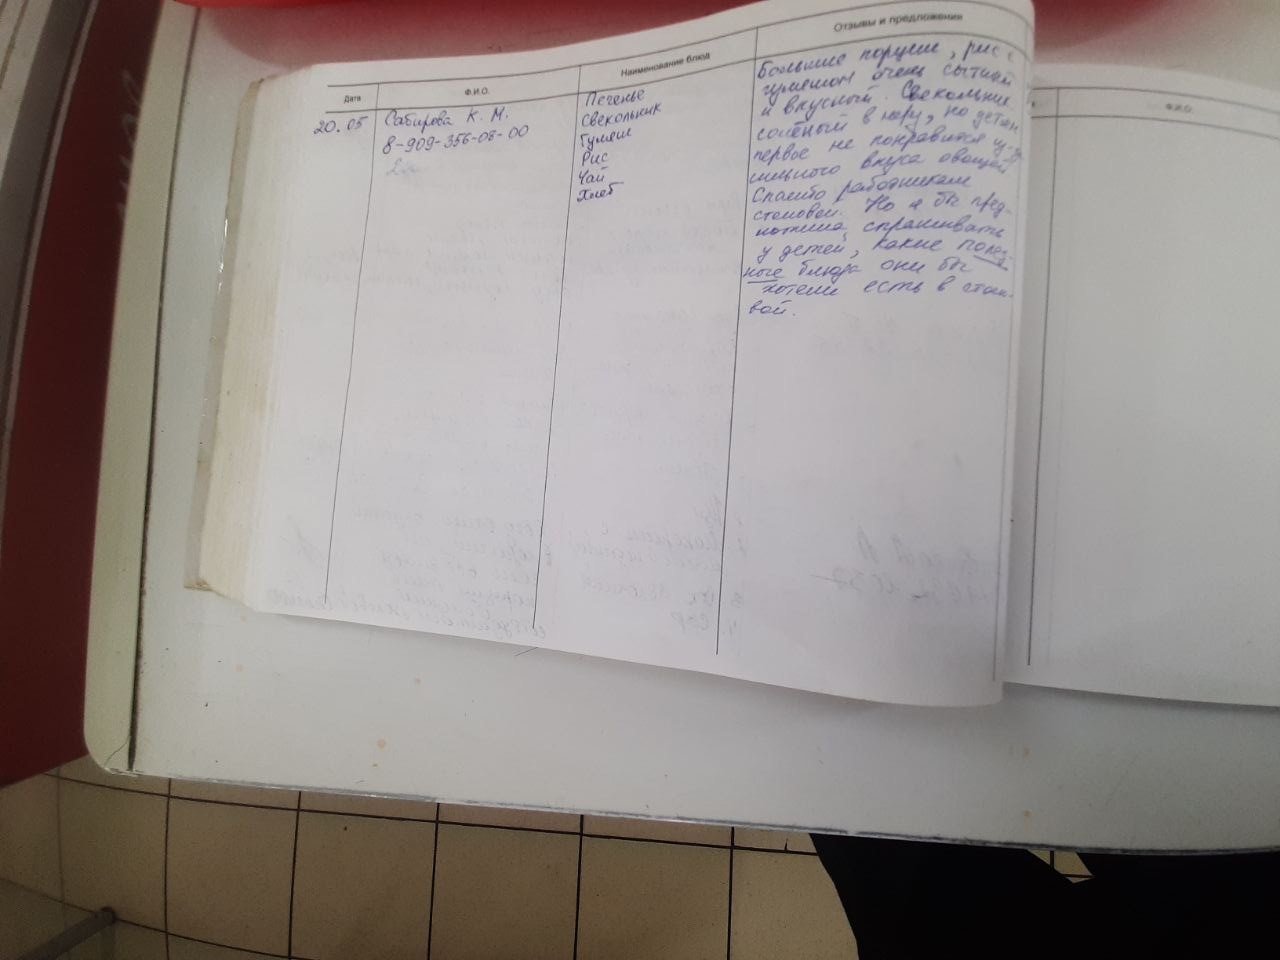 Дата
Ф.И.О.
Наименование блюд
Отзывы и предложения
20.05
Сабирова К. М.
8-909-356-08-00
2а
Печенье
Свекольник
Гуляш
Рис
Чай
Хлеб
Большие порции, рис с
гуляшом очень сытный
и вкусный. Свекольник
солёный в меру, но детям
первое не понравится из-за
сильного вкуса овощей
Спасибо работникам
столовой. Но я бы пред-
ложила спрашивать
у детей, какие полез-
ные блюда они бы
хотели есть в столо-
вой.
Ф.И.О.